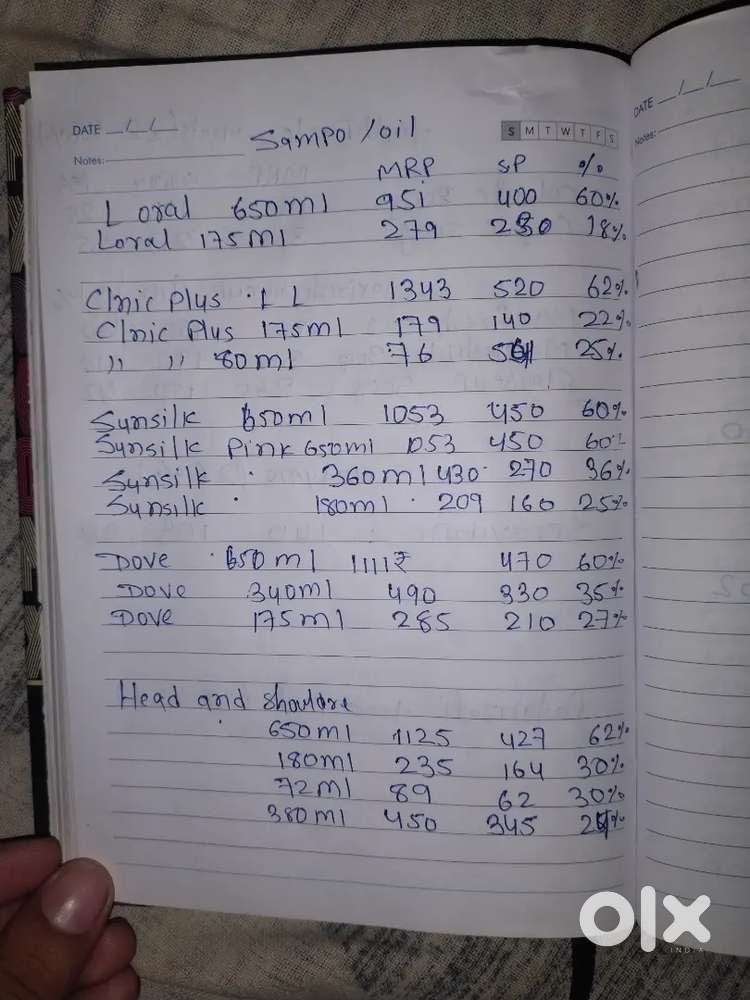 DATE
Sampo/oil
S M T W T F S
Notes:
MRP SP %
Loral 650ml 951 400 60%
Loral 175ml 279 230 18%
Clnic Plus 1 L 1343 520 62%
Clnic Plus 175ml 179 140 22%
,, ,, 80ml 76 25%
Sunsilk 650ml 1053 450 60%
Sunsilk Pink 650ml 1053 450 60%
Sunsilk 360ml 430 270 36%
Sunsilk 180ml 209 160 25%
Dove 650ml 1111₹ 470 60%
Dove 340ml 490 330 35%
Dove 175ml 285 210 27%
Head and
650ml 1125 427 62%
180ml 235 164 30%
72ml 89 62 30%
380ml 450 345
DATE
Notes:
olx
INDIA